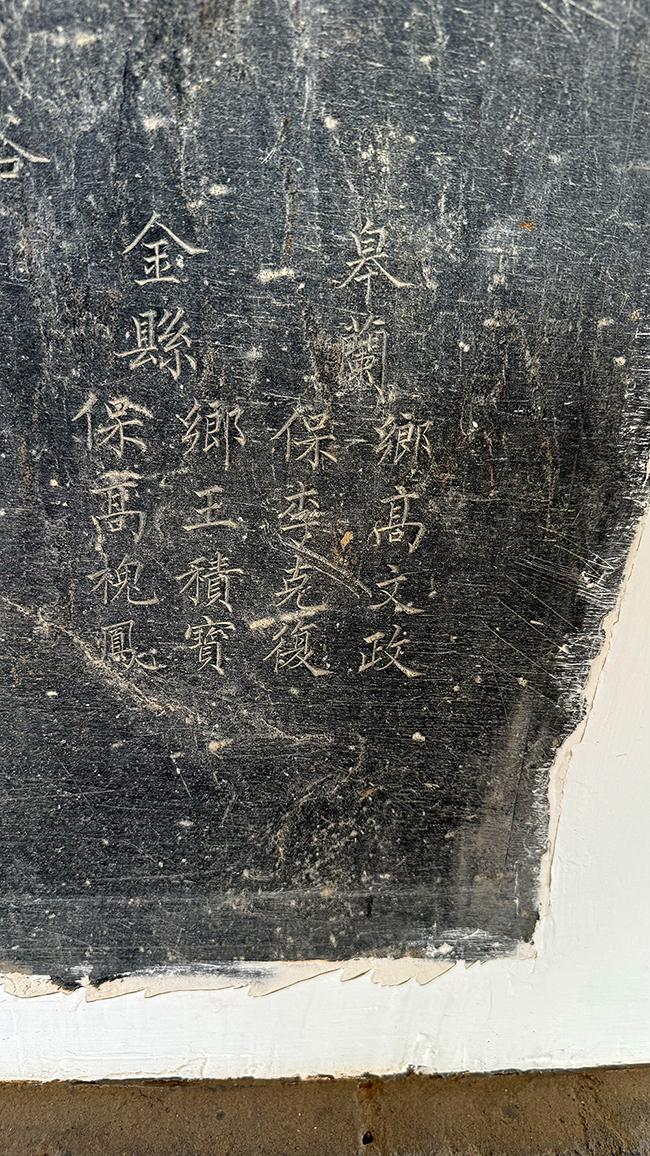 皋蘭
鄉髙文政
保李克復
金縣
鄉王積寶
保髙槐鳳